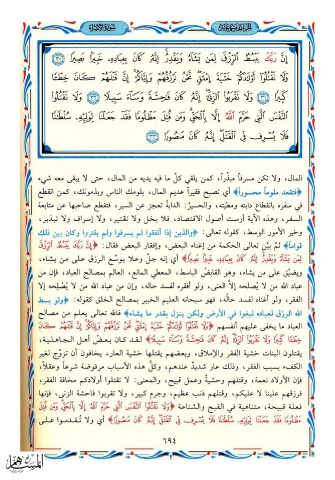 الجزء الخامس عشر
سورة الإسراء
إِنَّ رَبَّكَ يَبْسُطُ الرِّزْقَ لِمَن يَشَاءُ وَيَقْدِرُ إِنَّهُ كَانَ بِعِبَادِهِ خَبِيرًا بَصِيرًا ﴿٣٠﴾
وَلَا تَقْتُلُوا أَوْلَادَكُمْ خَشْيَةَ إِمْلَاقٍ نَّحْنُ نَرْزُقُهُمْ وَإِيَّاكُمْ إِنَّ قَتْلَهُمْ كَانَ خِطْئًا
كَبِيرًا ﴿٣١﴾ وَلَا تَقْرَبُوا الزِّنَى إِنَّهُ كَانَ فَاحِشَةً وَسَاءَ سَبِيلًا ﴿٣٢﴾ وَلَا تَقْتُلُوا
النَّفْسَ الَّتِي حَرَّمَ اللَّهُ إِلَّا بِالْحَقِّ وَمَن قُتِلَ مَظْلُومًا فَقَدْ جَعَلْنَا لِوَلِيِّهِ سُلْطَانًا
فَلَا يُسْرِف فِّي الْقَتْلِ إِنَّهُ كَانَ مَنصُورًا ﴿٣٣﴾
المال، ولا تكن مسرفاً مبذّراً، كمن يلقي كلّ ما فيه يديه من المال، حتى لا يبقى معه شيء
﴿فتقعد ملوماً محسوراً﴾ أي تصبح فقيراً عديم المال، يلومك الناس ويذمونك، كمن انقطع
في سفره بانقطاع دابته ومطيته، والحسيرُ: الدابةُ تعجز عن السير، فتقطع صاحبها عن متابعة
السفر، وهذه الآية أرست أصول الاقتصاد، فلا بخل ولا تقتير، ولا إسراف ولا تبذير،
وخير الأمور الوسط، وكقوله تعالى: ﴿والذين إذا أنفقوا لم يسرفوا ولم يقتروا وكان بين ذلك
قواماً﴾ ثمّ بيَّن تعالى الحكمة من إغناء البعض، وإفقار البعض فقال: ﴿إِنَّ رَبَّكَ يَبْسُطُ الرِّزْقَ
لِمَن يَشَاءُ وَيَقْدِرُ إِنَّهُ كَانَ بِعِبَادِهِ خَبِيرًا بَصِيرًا﴾ أي إنه جلّ وعلا يوسّع الرزق على من يشاء،
ويضيّق على من يشاء، وهو القابضُ الباسط، المعطي المانع، العالم بمصالح العباد، فإن من
عباد الله من لا يُصلحه إلاّ الغنى، ولو أفقره لفسد حاله، وإن من عباد الله من لا يُصلحه إلا
الفقر، ولو أغناه لفسد حاله، فهو سبحانه العليم الخبير بمصالح الخلق كقوله: ﴿ولو بسط
الله الرزق لعباده لبغوا في الأرض ولكن ينزل بقدر ما يشاء﴾ فالله تعالى يعلم من مصالح
العباد ما يخفى عليهم أنفسهم ﴿وَلَا تَقْتُلُوا أَوْلَادَكُمْ خَشْيَةَ إِمْلَاقٍ نَّحْنُ نَرْزُقُهُمْ وَإِيَّاكُمْ إِنَّ قَتْلَهُمْ كَانَ
خِطْئًا كَبِيرًا وَلَا تَقْرَبُوا الزِّنَى إِنَّهُ كَانَ فَاحِشَةً وَسَاءَ سَبِيلًا﴾ لقد كان بعض أهل الجاهلية،
يقتلون البنات خشية الفقر والإملاق، وبعضهم يقتلها خشية العار، يخافون أن تزوّج لغير
الكفء بسبب الفقر، وذلك عار شديدٌ عندهم، وكلّ هذه الأسباب مرفوضة شرعاً وعقلاً،
فإن الأولاد نعمة، وقتلهم وحشيةٌ وعمل قبيح، والمعنى: لا تقتلوا أولادكم مخافة الفقر،
فرزقهم علينا لا عليكم، وقتلهم ذنب عظيم، وجرم كبير، ولا تقربوا فاحشة الزنى، فإنها
فعلة قبيحة، متناهية في القبح والشناعة ﴿وَلَا تَقْتُلُوا النَّفْسَ الَّتِي حَرَّمَ اللَّهُ إِلَّا بِالْحَقِّ وَمَن قُتِلَ
مَظْلُومًا فَقَدْ جَعَلْنَا لِوَلِيِّهِ سُلْطَانًا فَلَا يُسْرِف فِّي الْقَتْلِ إِنَّهُ كَانَ مَنصُورًا﴾ أي ولا تُقدموا على
٦٩٤